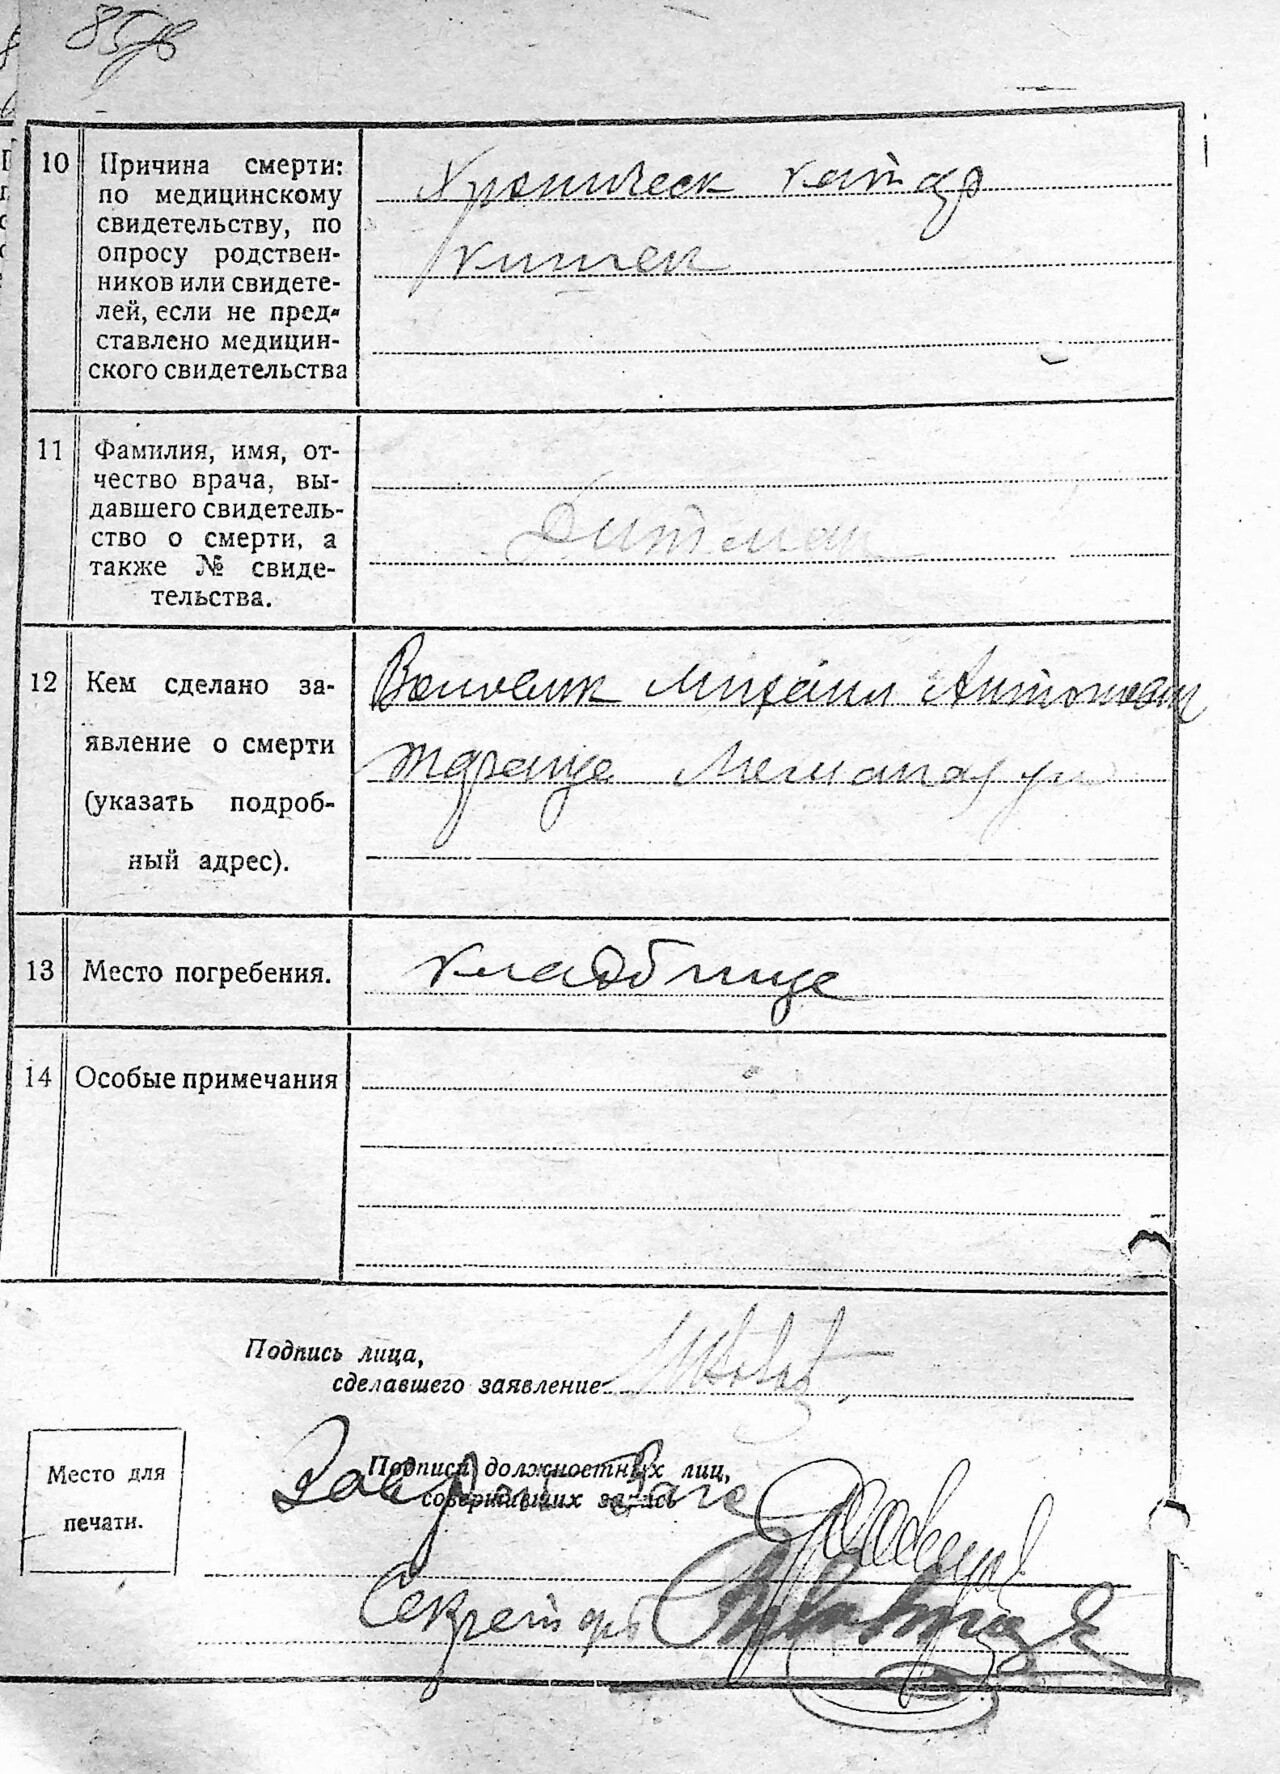 10 Причина смерти:
по медицинскому
свидетельству, по
опросу родствен-
ников или свидете-
лей, если не пред-
ставлено медицин-
ского свидетельства
Хроническ катар
кишек
11 Фамилия, имя, от-
чество врача, вы-
давшего свидетель-
ство о смерти, а
также № свиде-
тельства.
Дитман
12 Кем сделано за-
явление о смерти
(указать подроб-
ный адрес).
Михаил
13 Место погребения.
кладбище
14 Особые примечания
Подпись лица,
сделавшего заявление
Место для
печати.
Подписи должностных лиц,
совершивших запись
Секретарь